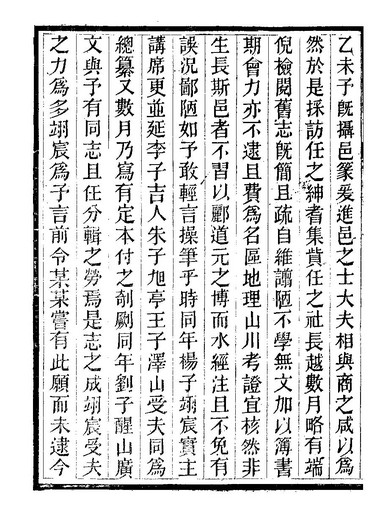 乙未予既攝邑篆爰進邑之士大夫相與商之咸以爲
然於是採訪任之紳耆集貲任之社長越數月略有端
倪檢閱舊志既簡且疏自維譾陋不學無文加以簿書
期會力亦不逮且費爲名區地理山川考證宜核然非
生長斯邑者不習以酈道元之博而水經注且不免有
誤況鄙陋如予敢輕言操筆乎時同年楊子翊宸實主
講席更並延李子吉人朱子旭亭王子澤山受夫同爲
總纂又數月乃寫有定本付之剞劂同年劉子醒山廣
文與予有同志且任分輯之勞焉是志之成翊宸受夫
之力爲多翊宸爲予言前令某某嘗有此願而未逮今